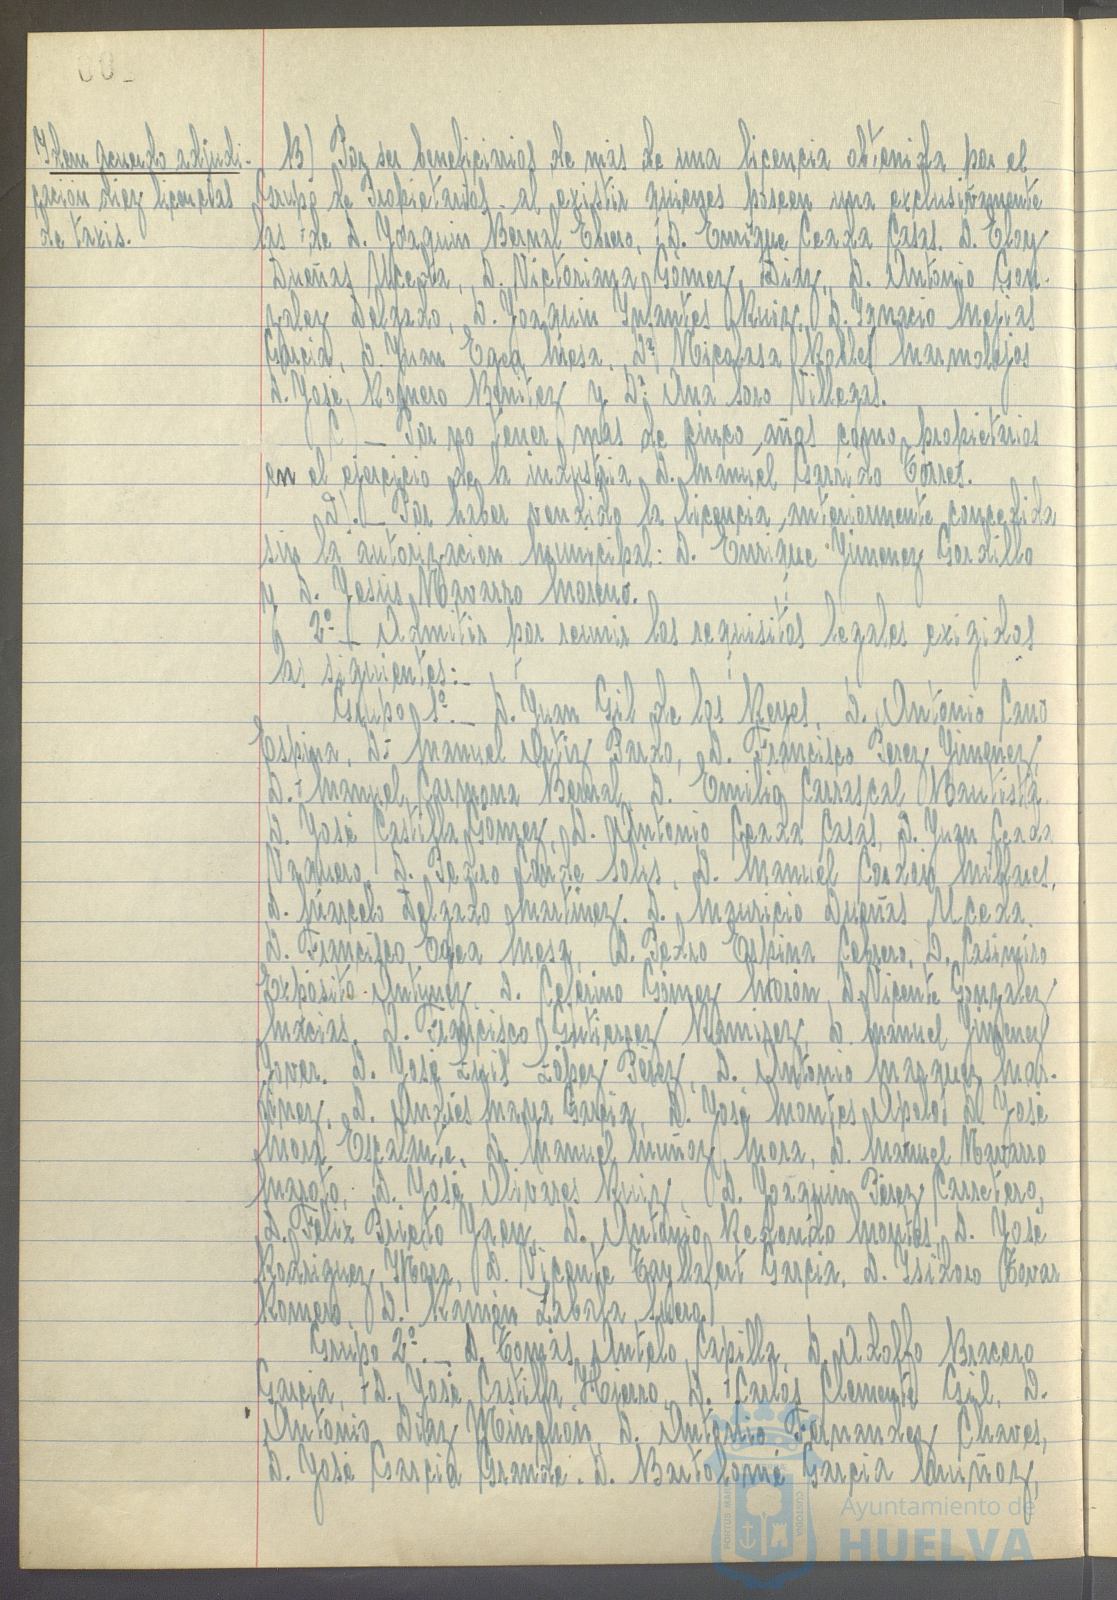 Idem acuerdo adjudi-
cación diez licencias
de taxis.
B) Por ser beneficiarios de más de una licencia obtenida por el
Grupo de Propietarios al existir quienes poseen una exclusivamente
las de D. Joaquin Bernal Ebrero, D. Enrique Ceada Casas. D. Eloy
Dueñas Uceda, D. Victoriana Gómez Diaz, D. Antonio Gon-
zalez Delgado, D. Joaquin Infantes Ruiz, D. Ignacio Mesias
Garcia, D. Juan Egea Mesa, Dª Nicolasa Robles Marmolejos
D. José Romero Benitez y Dª Ana Soro Villegas.
C) - Por no tener más de cinco años como propietarios
en el ejercicio de la industria D. Manuel Garrido Torres.
D). - Por haber vendido la licencia anteriormente concedida
sin la autorización Municipal: D. Enrique Jimenez Gordillo
y D. Jesús Navarro Moreno.
2º - Admitir por reunir los requisitos legales exigidos
las siguientes: -
Grupo 1º. - D. Juan Gil de los Reyes, D. Antonio Cano
Espina, D. Manuel Ortiz Pardo, D. Francisco Perez Jimenez,
D. Manuel Carmona Bernal, D. Emilio Carrascal Bautista
D. José Castilla Gómez, D. Antonio Ceada Casas, D. Juan Ceada
Vaquero, D. Pedro Conde Solis, D. Manuel Millares,
D. Marcelo Delgado Martinez. D. Mauricio Dueñas Uceda.
D. Francisco Egea Mesa, D. Pedro Espina Cabrero, D. Casimiro
Expósito Antunez, D. Celerino Gómez Morón, D. Vicente Gonzalez
Macias, D. Francisco Gutierrez Ramirez, D. Manuel Jimenez
Tovar. D. José Luis López Pérez, D. Antonio Marquez Mar-
tinez, D. Andrés Maria Garcia, D. José Montes D. José
Mora D. Manuel Muñoz Mora, D. Manuel Navarro
Maroto, D. José Olivares Ruiz, D. Joaquin Pérez Carretero,
D. Felix Prieto Jaen, D. Antonio Redondo Montes, D. José
Rodriguez Mora, D. Vicente Garcia, D. Isidoro Tovar
Romero, D. Ramón Zabala
Grupo 2º. - D. Tomás Antelo Capilla, D. Adolfo Bracero
Garcia, D. José Castilla Hierro, D. Carlos Clemente Gil, D.
Antonio Diaz Minchón D. Antonio Fernandez Chaves,
D. José Garcia Grande. D. Bartolomé Garcia Muñoz,
Ayuntamiento de
HUELVA